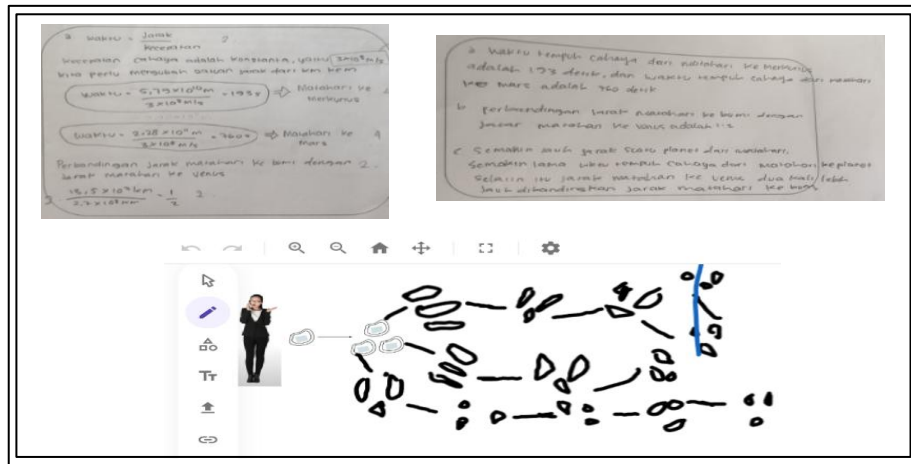 a waktu = Jarak
kecepatan
kecepatan cahaya adalah konstanta, yaitu 3x10⁸ m/s
kita perlu mengubah satuan jarak dari km ke m
waktu = 5,79 x 10¹⁰ m = 193 s ⇒ Matahari ke
3 x 10⁸ m/s Merkurius
waktu = 2.28 x 10¹¹ m = 760 s ⇒ Matahari ke
3 x 10⁸ m/s mars
Perbandingan jarak matahari ke bumi dengan
Jarak matahari ke venus
= 1
2
a waktu tempuh cahaya dari matahari ke merkurius
adalah 193 detik, dan waktu tempuh cahaya dari matahari
ke mars adalah 760 detik
b perbandingan jarak matahari ke bumi dengan
jarak matahari ke venus adalah 1:2
c Semakin jauh jarak suatu planet dari matahari,
semakin lama waktu tempuh cahaya dari matahari ke planet
selain itu jarak matahari ke venus dua kali lebih
jauh dibandingkan jarak matahari ke bumi
Tт